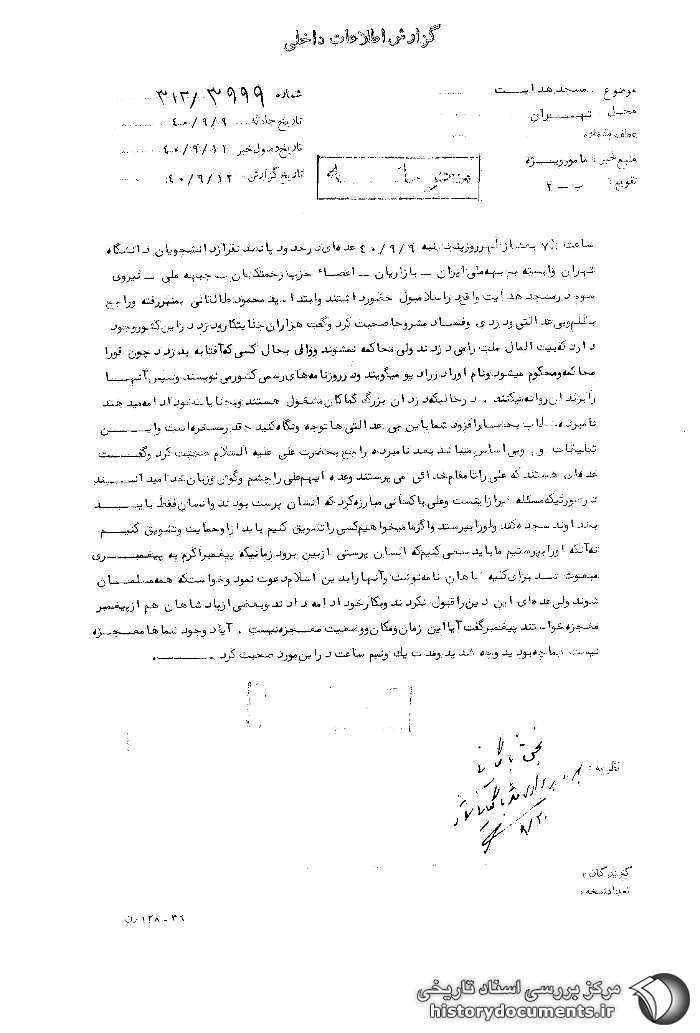 گزارش اطلاعات داخلی
موضوع : مسجد هدایت
محل تهران
عطف / پیشینه
منبع خبر : مامور ویژه
تقویم : ب - ۲
شماره ۳۱۲/۳۹۹۹
تاریخ حادثه ۴۰/۹/۹
تاریخ وصول خبر ۴۰/۹/۱۲
تاریخ گزارش ۴۰/۹/۱۲
ساعت بعد از ظهر روز پنجشنبه ۴۰/۹/۹ عده‌ای در حدود پانصد نفر از دانشجویان دانشگاه
تهران وابسته به جبهه ملی ایران - بازاریان - اعضاء حزب زحمتکشان - جبهه ملی - نیروی
سوم در مسجد هدایت واقع در اسلامبول حضور داشتند و ابتدا سید محمود طالقانی بمنبر رفته و راجع
بظلم و بی عدالتی و دزدی و فساد مشروحا صحبت کرد و گفت هزاران جنایتکار و دزد در این کشور وجود
دارد که بیت المال ملت را می دزدند ولی محاکمه نمیشوند و وای بحال کسی که آفتابه بدزدد چون فورا
محاکمه و محکوم میشود و نام او را در رادیو میگویند و در روزنامه‌های رسمی کشور می نویسند و سپس آنها
را بزندان روانه میکنند . در حالیکه دزدان بزرگ کماکان مشغول هستند و بجنایات خود ادامه میدهند
نامبرده خطاب بحضار افزود شما باین بی عدالتی ها توجه و نگاه کنید چقدر مسخره است و این
تبلیغات و بی اساس میباشد بعد نامبرده راجع بحضرت علی علیه السلام صحبت کرد و گفت
عده‌ای هستند که علی را تا مقام خدائی می پرستند و عده ایهم علی را چشم و گوش و زبان خدا میدانند
در صورتیکه مسئله غیر از اینست و علی با کسانی مبارزه کرد که انسان پرست بودند و انسان فقط باید
بخداوند سجده کند و او را بپرستد و اگر ما میخواهیم کسی را تشویق کنیم باید از او حمایت و تشویق کنیم
نه آنکه او را بپرستیم ما باید سعی کنیم که انسان پرستی از بین برود زمانیکه پیغمبر اکرم به پیغمبری
مبعوث شد برای کلیه شاهان نامه نوشت و آنها را بدین اسلام دعوت نمود و خواست که همه مسلمان
شوند ولی عده‌ای این دین را قبول نکردند و بکار خود ادامه دادند و بعضی از پادشاهان هم از پیغمبر
معجزه خواستند پیغمبر گفت آیا این زمان و مکان و وضعیت معجزه نیست . آیا وجود شماها معجزه
نیست شما چه بودید و چه شدید و مدت یک و نیم ساعت در این مورد صحبت کرد .
نظریه :
۹/۲۰
گیرندگان :
تعداد نسخه :
۳۶ - ۱۲۸
مرکز بررسی اسناد تاریخی
historydocuments.ir